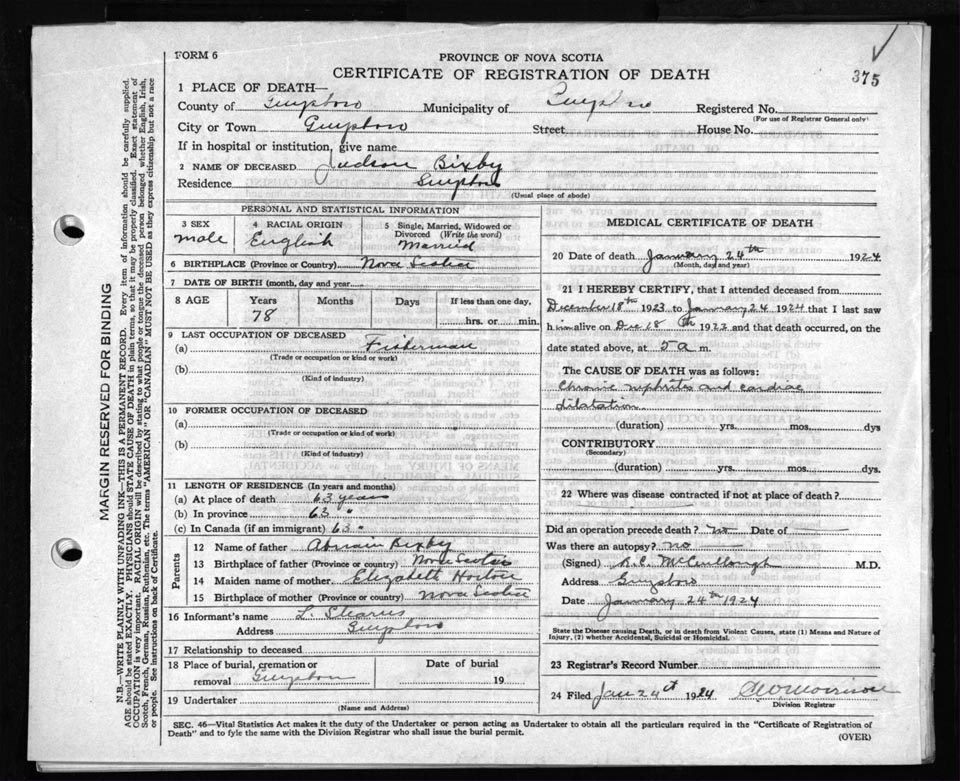 FORM 6
PROVINCE OF NOVA SCOTIA
CERTIFICATE OF REGISTRATION OF DEATH
375
1 PLACE OF DEATH—
County of Guysboro Municipality of Registered No.
(For use of Registrar General only)
City or Town Guysboro Street House No.
If in hospital or institution, give name
2 NAME OF DECEASED Judson Bixby
Residence Guysboro
(Usual place of abode)
PERSONAL AND STATISTICAL INFORMATION
3 SEX 4 RACIAL ORIGIN 5 Single, Married, Widowed or
Divorced (Write the word)
male English Married
6 BIRTHPLACE (Province or Country) Nova Scotia
7 DATE OF BIRTH (month, day and year)
8 AGE Years Months Days If less than one day,
78 hrs. or min.
9 LAST OCCUPATION OF DECEASED
(a) Fisherman
(Trade or occupation or kind or work)
(b)
(Kind of industry)
10 FORMER OCCUPATION OF DECEASED
(a)
(Trade or occupation or kind of work)
(b)
(Kind of industry)
11 LENGTH OF RESIDENCE (In years and months)
(a) At place of death 63 years
(b) In province 63 "
(c) In Canada (if an immigrant) 63 "
Parents
12 Name of father Bixby
13 Birthplace of father (Province or country) Nova Scotia
14 Maiden name of mother Elizabeth Horton
15 Birthplace of mother (Province or country) Nova Scotia
16 Informant's name L.
Address Guysboro
17 Relationship to deceased
18 Place of burial, cremation or Date of burial
removal Guysboro 19
19 Undertaker
(Name and Address)
MEDICAL CERTIFICATE OF DEATH
20 Date of death January 24th 1924
(Month, day and year)
21 I HEREBY CERTIFY, that I attended deceased from
December 18th 1923 to January 24 1924 that I last saw
him alive on Dec 18th 1923 and that death occurred, on the
date stated above, at 5 a m.
The CAUSE OF DEATH was as follows:
Chronic nephritis and cardiac
dilatation
(duration) yrs. mos. dys
CONTRIBUTORY
(Secondary)
(duration) yrs. mos. dys.
22 Where was disease contracted if not at place of death?
Did an operation precede death? no Date of
Was there an autopsy? no
(Signed) McCullough M.D.
Address Guysboro
Date January 24th 1924
State the Disease causing Death, or in death from Violent Causes, state (1) Means and Nature of
Injury, (2) whether Accidental, Suicidal or Homicidal.
23 Registrar's Record Number
24 Filed Jan 24th 1924 Morrison
Division Registrar
SEC. 46—Vital Statistics Act makes it the duty of the Undertaker or person acting as Undertaker to obtain all the particulars required in the "Certificate of Registration of
Death" and to fyle the same with the Division Registrar who shall issue the burial permit.
(OVER)
MARGIN RESERVED FOR BINDING
N.B.—WRITE PLAINLY WITH UNFADING INK—THIS IS A PERMANENT RECORD. Every item of information should be carefully supplied.
AGE should be stated EXACTLY. PHYSICIANS should STATE CAUSE OF DEATH in plain terms, so that it may be properly classified. Exact statement of
OCCUPATION is very important. RACIAL ORIGIN will be described by stating to what people or tongue the deceased person belonged whether English, Irish,
Scotch, French, German, Russian, Ruthenian, etc. The terms "AMERICAN" OR "CANADIAN" MUST NOT BE USED as they express citizenship but not a race
or people. See instructions on back of Certificate.